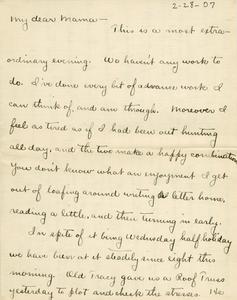 2-28-07
My dear Mama-
This is a most extra-
ordinary evening. We haven't any work to
do. I've done every bit of advance work I
can think of, and am through. Moreover I
feel as tired as if I had been out hunting
all day, and the two make a happy combination.
You don't know what an enjoyment I get
out of loafing around writing a letter home,
reading a little, and then turning in early.
In spite of it being Wednesday half holiday
we have been at it steadily since eight this
morning. Old Tracy gave us a Roof Truss
yesterday to plot and check the stresses. He